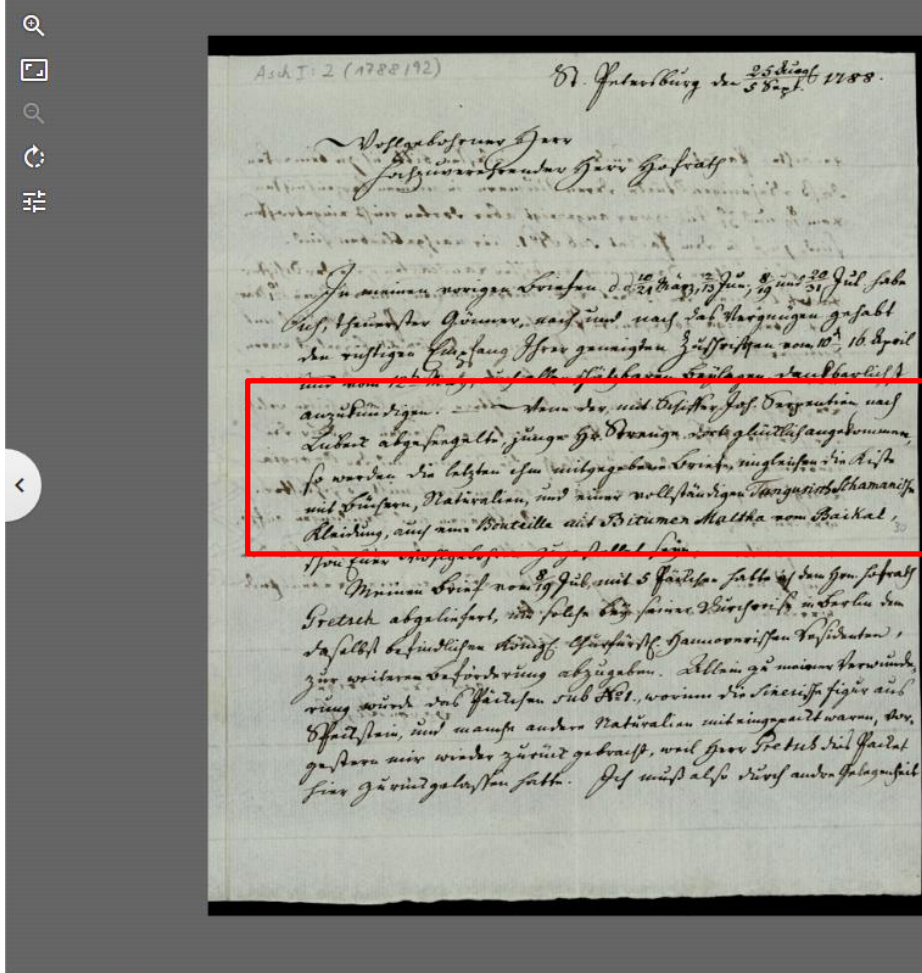 Asch I: 2 (1788/92)
St. Petersburg den 25 Aug/5 Sept. 1788.
Wohlgebohrner Herr
Hochzuverehrender Herr Hofrath
In meinen vorigen Briefen d.d. 10/21 März, 2/13 Jun, 8/19 und 20/31 Jul. habe
ich, theuerster Gönner, nach und nach das Vergnügen gehabt
den richtigen Empfang Ihrer geneigten Zuschriften vom 10t, 16. April
und vom 12t May, nebst allen schätzbaren Beylagen dankbarlichst
anzukündigen. — Wenn der, mit Schiffer Joh. Serpentien nach
Lübeck abgeseegelte, junge Hr. Strenge dort glücklich angekommen,
so werden die letzten ihm mitgegebene Briefe, imgleichen die Kiste
mit Büchern, Naturalien, und einer vollständigen Tungusisch Schamanische
Kleidung, auch eine Bouteille mit Bitumen Maltha vom Baikal,
schon Euer Wohlgeb. zugestellet seyn.
30
Meinen Brief vom 8/19 Jul. mit 5 Päckchen hatte ich dem Hrn. Hofrath
Gretsch abgeliefert, um solche bey seiner Durchreise in Berlin dem
daselbst befindlichen Königl. Churfürstl. Hannoverischen Residenten,
zur weiteren Beförderung abzugeben. Allein zu meiner Verwunde-
rung wurde das Päckchen sub No 1., worinn die Sinesische Figur aus
Speckstein, und manche andere Naturalien mit eingepackt waren, vor-
gestern mir wieder zurück gebracht, weil Herr Gretsch dies Packet
hier zurückgelassen hatte. Ich muß also durch andre Gelegenheit